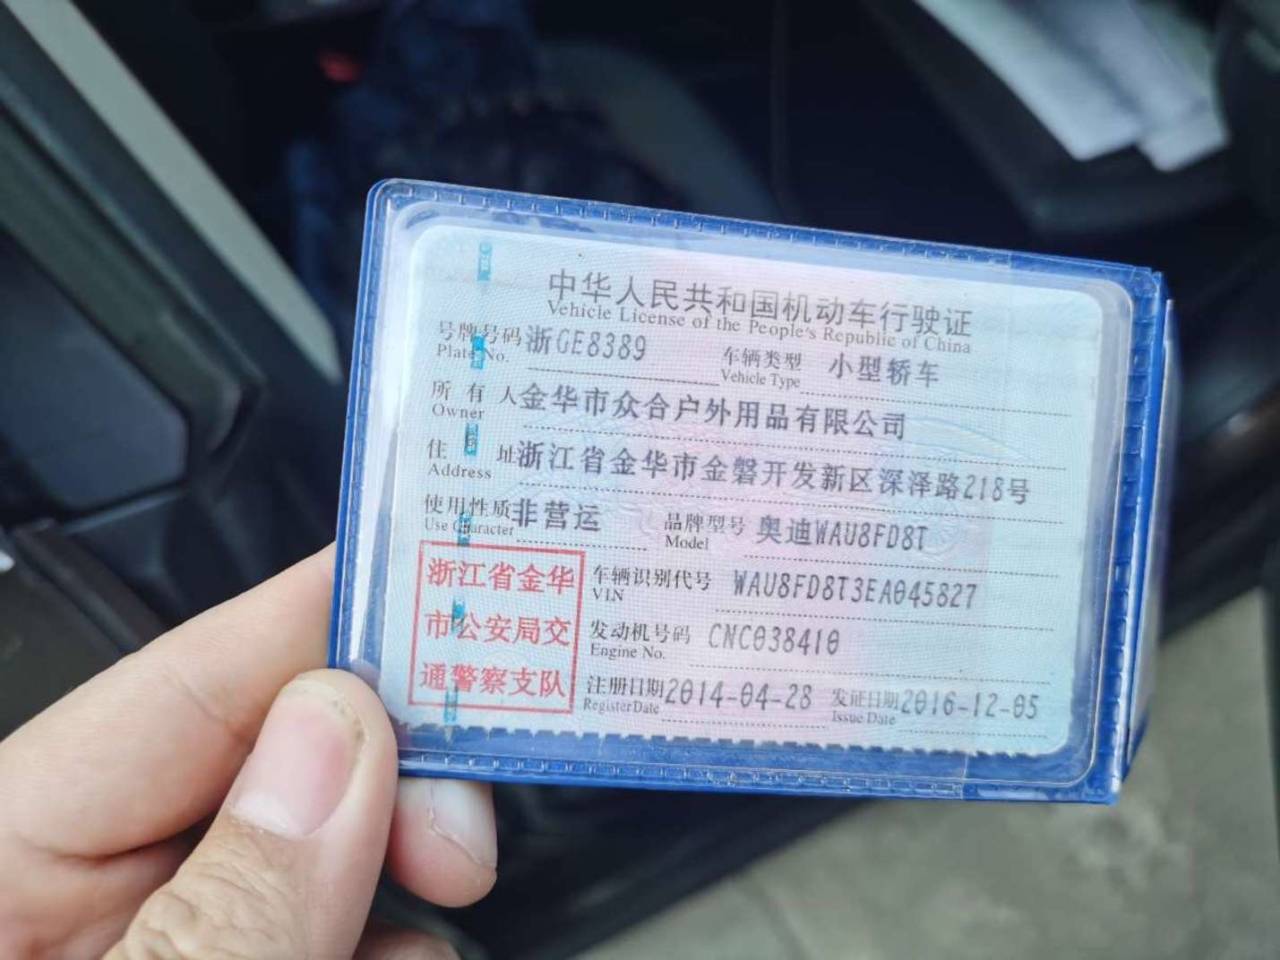 中华人民共和国机动车行驶证
Vehicle License of the People's Republic of China
号牌号码 浙GE8389 车辆类型 小型轿车
Plate No. Vehicle Type
所有人 金华市众合户外用品有限公司
Owner
住址 浙江省金华市金磐开发新区深泽路218号
Address
使用性质 非营运 品牌型号 奥迪WAU8FD8T
Use Character Model
浙江省金华
市公安局交
通警察支队
车辆识别代号 WAU8FD8T3EA045827
VIN
发动机号码 CNC038410
Engine No.
注册日期 2014-04-28 发证日期 2016-12-05
Register Date Issue Date